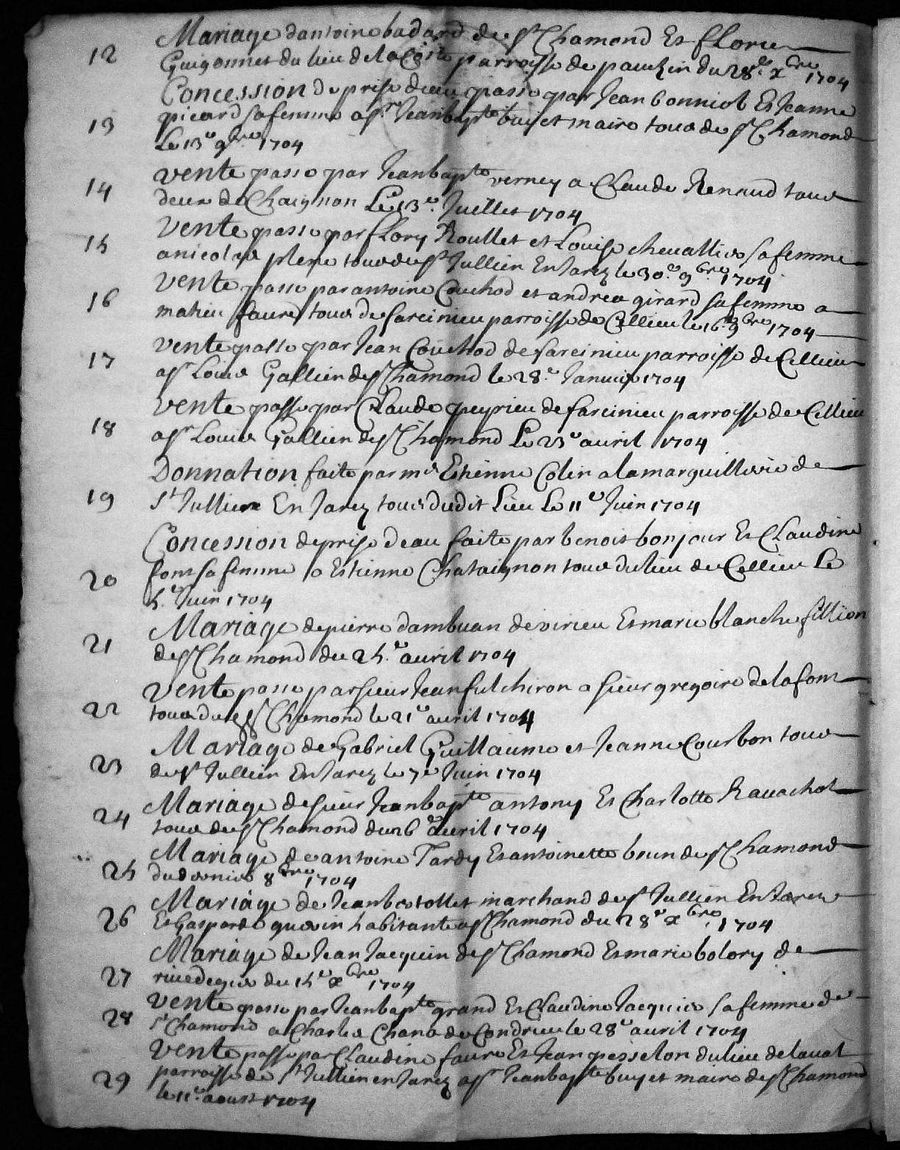 12 Mariage dantoine badard de st Chamond Et florie
Guigonnet du lieu de la Côte parroisse de pauzin du 28e xbre 1704
Concession de prise deau passe par Jean bonniot Et Jeanne
13 picard sa femme a sr Jean bapte buyet maire tous de st Chamond
Le 13e 9bre 1704
14 Vente passe par Jean bapte verney a Claude Renaud tous
deux de Chaignon Le 13e Juillet 1704
15 Vente passe par flory Roullet et Louise chevallier sa femme
a nicolas tous de st Jullien En Jarez le 30e 9bre 1704
16 Vente passe par antoine Couchod et andrea girard sa femme a
mathieu faure tous de farcinieu parroisse de Cellieu le 16e 9bre 1704
17 Vente passe par Jean Couchod de farcinieu parroisse de Cellieu
a sr Louis Gallien de st Chamond le 28e Janvier 1704
18 Vente passe par Claude peyrieu de farcinieu parroisse de Cellieu
a sr Louis Gallien de st Chamond Le 23e avril 1704
Donnation faite par mr Etienne Colin a la marguillerie de
19 st Jullien En Jarez tous dudit Lieu Le 11e Juin 1704
Concession de prise deau faite par benoit bonjour Et Claudine
20 font sa femme a Estienne Chataignon tous du lieu de Cellieu Le
5e Juin 1704
21 Mariage de pierre dambuan de virieu Et marie blanche fillion
de st Chamond du 25e avril 1704
22 Vente passe par sieur Jean fulchiron a sieur gregoire de la font
tous du st Chamond le 21e avril 1704
23 Mariage de Gabriel Guillaume et Jeanne Courbon tous
de st Jullien En Jarez le 7e Juin 1704
24 Mariage de sieur Jean bapte antony Et Charlotte Ravachol
tous de st Chamond du 26e avril 1704
25 Mariage de antoine Tardy Et antoinette brun de st Chamond
du dernier 8bre 1704
Mariage de Jean bertollet marchand de st Jullien En Jarez
26 Et Gasparde quoin habitante a st Chamond du 28e xbre 1704
Mariage de Jean Jacquin de st Chamond Et marie bolory de
27 rivedegier du 15e xbre 1704
28 Vente passe par Jean bapte grand Et Claudine Jacquier sa femme de
st Chamond a Charles Chana de Condrieu le 28e avril 1704
Vente passe par Claudine faure Et Jean presselon du lieu de laval
29 parroisse de st Jullien en Jarez a sr Jean bapte buyet maire de st Chamond
le 11e aoust 1704